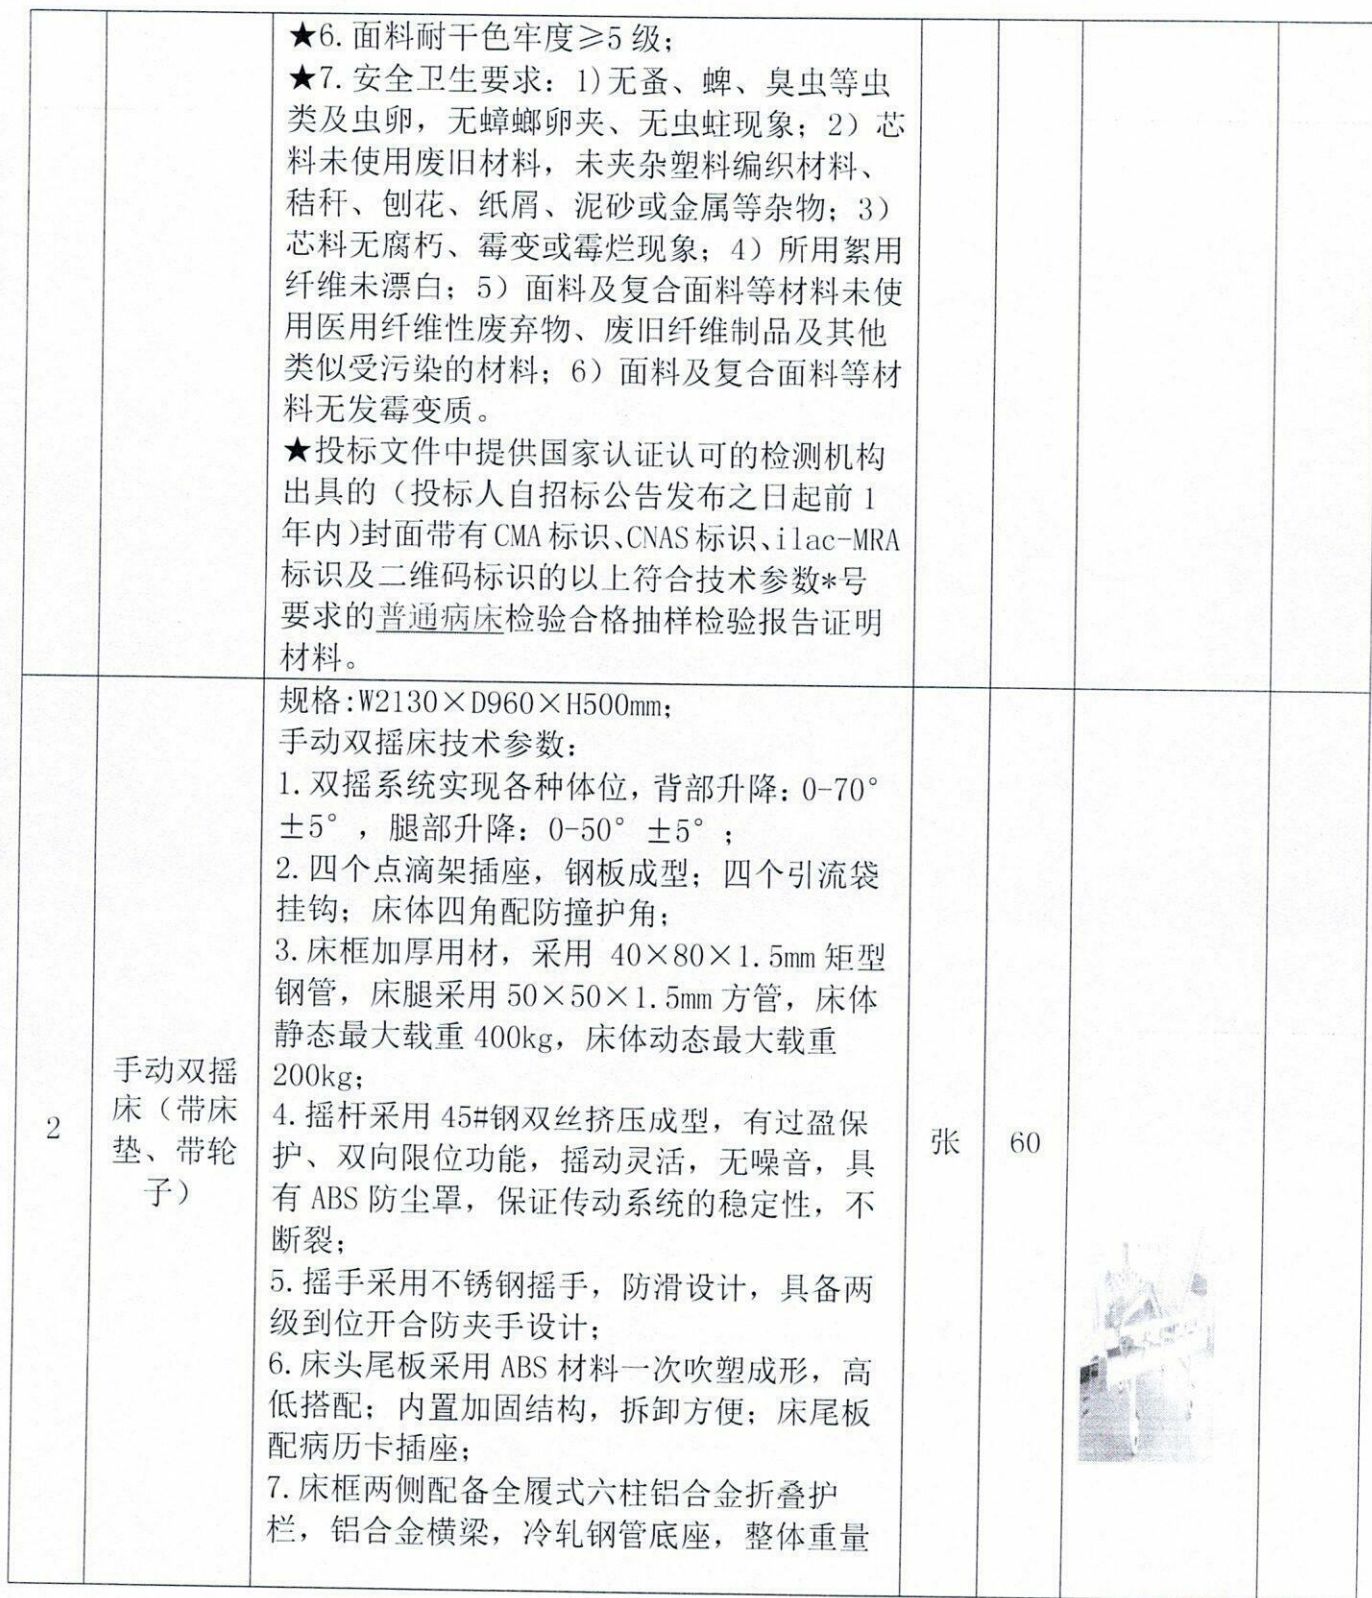 ★6.面料耐干色牢度≥5级；
★7.安全卫生要求：1)无蚤、蜱、臭虫等虫
类及虫卵，无蟑螂卵夹、无虫蛀现象；2）芯
料未使用废旧材料，未夹杂塑料编织材料、
秸秆、刨花、纸屑、泥砂或金属等杂物；3）
芯料无腐朽、霉变或霉烂现象；4）所用絮用
纤维未漂白；5）面料及复合面料等材料未使
用医用纤维性废弃物、废旧纤维制品及其他
类似受污染的材料；6）面料及复合面料等材
料无发霉变质。
★投标文件中提供国家认证认可的检测机构
出具的（投标人自招标公告发布之日起前1
年内）封面带有CMA标识、CNAS标识、ilac-MRA
标识及二维码标识的以上符合技术参数*号
要求的普通病床检验合格抽样检验报告证明
材料。
2
手动双摇
床（带床
垫、带轮
子）
规格:W2130×D960×H500mm；
手动双摇床技术参数：
1.双摇系统实现各种体位，背部升降：0-70°
±5°，腿部升降：0-50°±5°；
2.四个点滴架插座，钢板成型；四个引流袋
挂钩；床体四角配防撞护角；
3.床框加厚用材，采用 40×80×1.5mm矩型
钢管，床腿采用50×50×1.5mm方管，床体
静态最大载重400kg，床体动态最大载重
200kg；
4.摇杆采用45#钢双丝挤压成型，有过盈保
护、双向限位功能，摇动灵活，无噪音，具
有ABS防尘罩，保证传动系统的稳定性，不
断裂；
5.摇手采用不锈钢摇手，防滑设计，具备两
级到位开合防夹手设计；
6.床头尾板采用ABS材料一次吹塑成形，高
低搭配；内置加固结构，拆卸方便；床尾板
配病历卡插座；
7.床框两侧配备全履式六柱铝合金折叠护
栏，铝合金横梁，冷轧钢管底座，整体重量
张
60